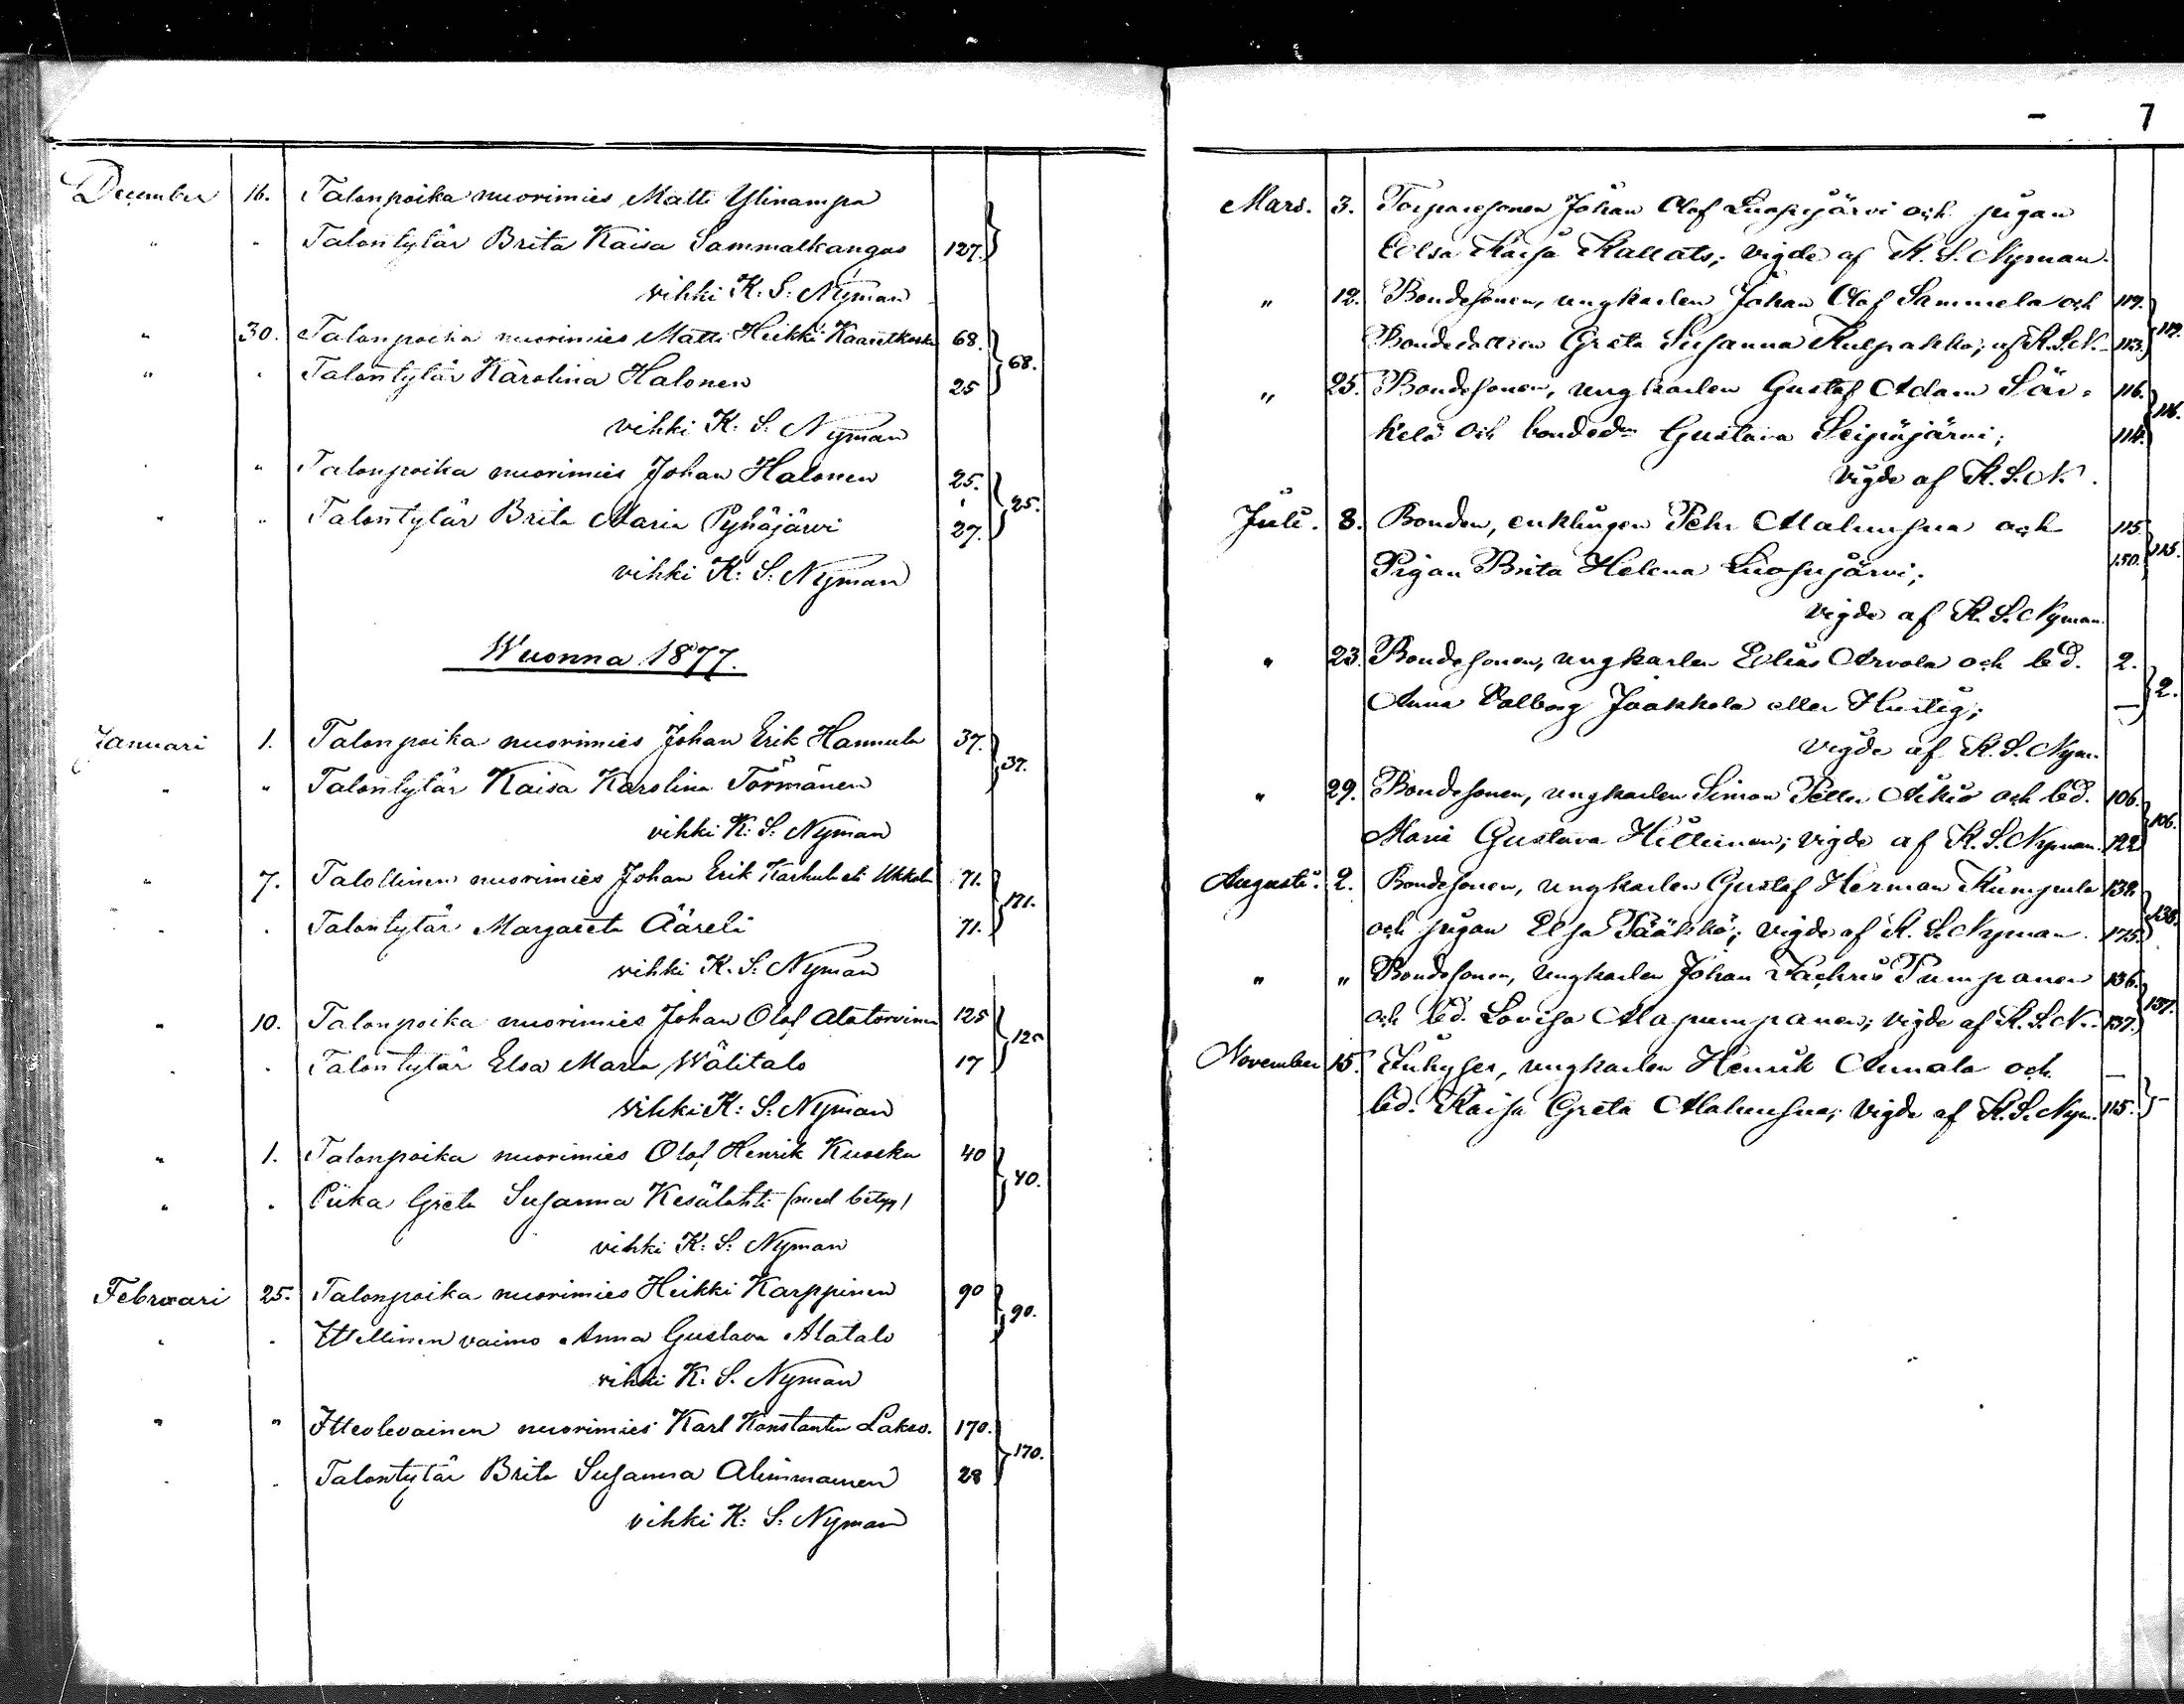 December 16. Talonpoika nuorimies Matti Ylinampa
" " Talontytär Brita Kaisa Sammalkangas 127.
vihki K: S: Nyman
" 30. Talonpoika nuorimies Matti Heikki 68. 68.
" " Talontytär Karolina Halonen 25
vihki K: S: Nyman
" " Talonpoika nuorimies Johan Halonen 25. 25.
" " Talontytär Brita Maria Pyhäjärvi 27.
vihki K: S: Nyman
Wuonna 1877.
Januari 1. Talonpoika nuorimies Johan Erik Hannula 37. 37.
" " Talontytär Kaisa Karolina Törmänen
vihki K: S: Nyman
" 7. Talollinen nuorimies Johan Erik Karhula eli Ukkola 71. 171.
" " Talontytär Margareta Ääreli 71.
vihki K. S: Nyman
" 10. Talonpoika nuorimies Johan Olof Alatorvinen 125
" " Talontytär Elsa Maria Wälitalo 17
vihki K: S: Nyman
" 1. Talonpoika nuorimies Olof Henrik Kuoska 40 40.
" " Piika Greta Susanna Kesälahti (med betyg)
vihki K: S: Nyman
Februari 25. Talonpoika nuorimies Heikki Karppinen 90 90.
" " Itellinen vaimo Anna Gustava Alatalo
vihki K. S. Nyman
" " Itteolevainen nuorimies Karl Konstantin Lakso. 170. 170.
" " Talontytär Brita Susanna Alimmainen 28
vihki K: S: Nyman
7
Mars. 3. Torparesonen Johan Olof Luosujärvi och pigan
Elsa Kaisa Kallats; vigde af K. S. Nyman.
" 12. Bondesonen, ungkarlen Johan Olof Sammela och 112. 112.
Bondedottren Greta Susanna Kulpakko; af K.S.N. 113.
" 25. Bondesonen, ungkarlen Gustaf Adam Sär- 116. 116.
kelä och bondedn Gustava Seipäjärvi; 114.
vigde af K. S. N.
Juli. 8. Bonden, enklingen Pehr Alalunsua och 115. 115.
Pigan Brita Helena Luosujärvi; 150.
vigde af K. S. Nyman.
" 23. Bondesonen, ungkarlen Elias Arvola och bd. 2. 2.
Anna Valborg Jaakkola eller Hurtig; —
vigde af K. S. Nym.
" 29. Bondesonen, ungkarlen Simon Petter Aikio och bd. 106. 106.
Maria Gustava Hiltunen; vigde af K. S. Nyman. 122
Augusti. 2. Bondesonen, ungkarlen Gustaf Herman Kumpula 138. 138.
och pigan Elsa Pääkkö; vigde af K. S. Nyman. 175.
" " Bondesonen, ungkarlen Johan Zachris Pumpanen 136. 137.
och bd. Lovisa Alapumpanen; vigde af K. S. N. 137.
November 15. Inhyses, ungkarlen Henrik Annala och —
bd. Kaisa Greta Alalunsua; vigde af K. S. Nym. 115. -